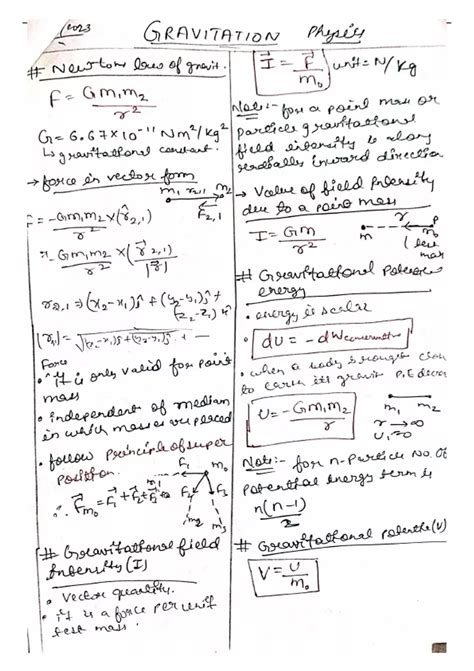 2023
GRAVITATION Physics
# Newtons law of gravit.
F = Gm1m2 / r²
G = 6.67×10⁻¹¹ Nm²/kg²
↳ gravitational constant.
→ force in vector form
m1 r2,1 m2
F2,1
F = -Gm1m2 / r² × (r̂2,1)
= -Gm1m2 / r² × (r⃗2,1 / |r⃗|)
r2,1 ⇒ (x2-x1)î + (y2-y1)ĵ + (z2-z1)
Force
• It is only valid for point
mass
• independent of medium
in which masses are placed
• follow principle of super
position.
F1 m0
F2 F3
m2 m3
∴ F⃗m0 = F⃗1+F⃗2+F⃗3+
# Gravitational field
Intensity (I)
• vector quantity.
• it is a force per unit
test mass.
I⃗ = F⃗ / m0 unit = N/kg
Note:- for a point mass or
particle gravitational
field intensity is along
radially inward direction
→ Value of field Intensity
due to a point mass
I = Gm / r²
r P
m m0
(test
mass
# Gravitational Potential
energy
• energy is scalar
• dU = -dWconservative
• when a body is brought
to earth its gravit P.E
U = -Gm1m2 / r
m1 m2
r → ∞
U = 0
Note:- for n-particle No. of
potential energy term is
n(n-1) / 2
# Gravitational potential (V)
V = U / m0